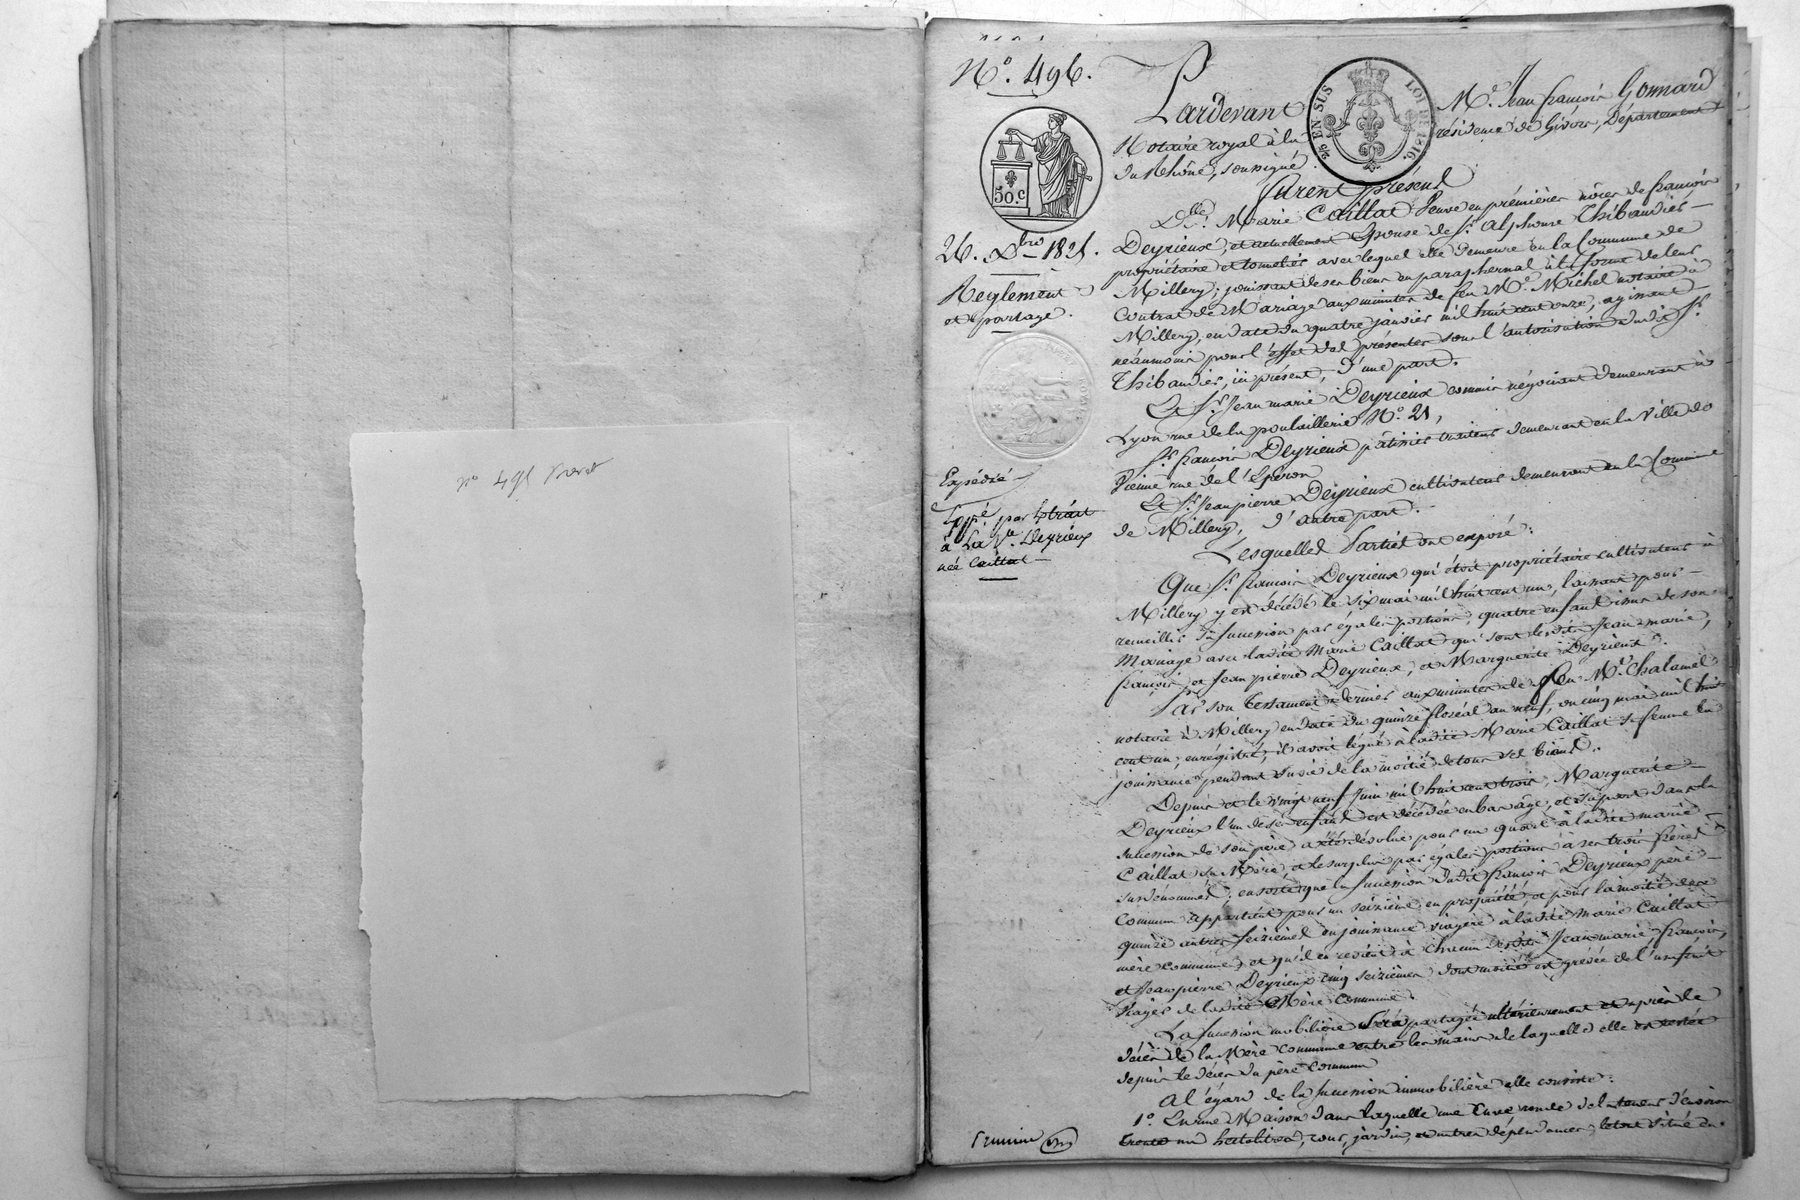 nº 495
Nº. 496.
50.c
2/5 EN SUS
LOI DE 1816.
26. Xbre 1825.
Reglement
et partage.
Expédié
Expé. par Extrait
à La Ve. Deyrieux
née Caillat
Pardevant Me. Jean françois Gonnard
Notaire royal à la résidence de Givors, Département
du Rhône, soussigné
furent présent
Dlle. Marie Caillat veuve en premières nôces de françois
Deyrieux, et actuellement Epouse de Sr. Alphonse Thibaudier
propriétaire et tonnelier avec lequel elle demeure en la Commune de
Millery; jouissant de ses biens en paraphernal à la forme de leur
Contrat de Mariage aux minutes de feu Me. Michel notaire à
Millery, en date du quatre janvier mil huit cent onze, agissant
néanmoins pour l'effet des présentes sous l'autorisation dudit Sr.
Thibaudier, ici présent, d'une part.
Et Sr. Jean marie Deyrieux commis négociant demeurant à
Lyon rue de la poulaillerie Nº 21,
Sr. françois Deyrieux pâtissier traiteur demeurant en la ville de
Vienne rue de l'Eperon
Et Sr. Jean pierre Deyrieux cultivateur demeurant en la Commune
de Millery, d'autre part.
Lesquelles Parties ont exposé:
Que Sr. françois Deyrieux qui étoit propriétaire cultivateur à
Millery y est décédé le six mai mil huit cent un, laissant pour
recueillir sa succession par égales portions, quatre enfants issus de son
Mariage avec ladite Marie Caillat qui sont lesdits Jean marie,
françois, et Jean pierre Deyrieux, et Marguerite Deyrieux.
Par son testament dernier aux minutes de feu Me. Chalamel
notaire à Millery en date du quinze floréal an neuf, ou cinq mai mil huit
cent un, enregistré, il avoit légué à ladite Marie Caillat sa femme la
jouissance pendant sa vie de la moitié de tous ses biens.
Depuis et le vingt neuf juin mil huit cent trois, Marguerite
Deyrieux l'un de ses enfants est décédée en bas âge, et sa part dans la
succession de son père a été dévolue pour un quart à ladite marie
Caillat sa Mère, et le surplus par égales portions à ses trois frères
susdénommés; en sorte que la succession dudit françois Deyrieux père
Commun appartient pour un seizième en propriété et pour la moitié des
quinze autres seizièmes en jouissance viagère à ladite marie Caillat
mère commune, et qu'il en revient à chacun desdits Jean marie françois,
et Jean pierre Deyrieux cinq seizièmes dont moitié est grévée de l'usufruit
viager de ladite Mère Commune.
La succession mobilière sera partagée ultérieurement et après le
décès de la Mère Commune entre les mains de laquelle elle est restée
depuis le décès du père Commun
Al'égard de la succession immobilière elle consiste:
1º. En une Maison dans laquelle une Cuve ronde de la teneur d'environ
trente un hectolitres, cour, jardin, et autres dépendances, le tout situé au